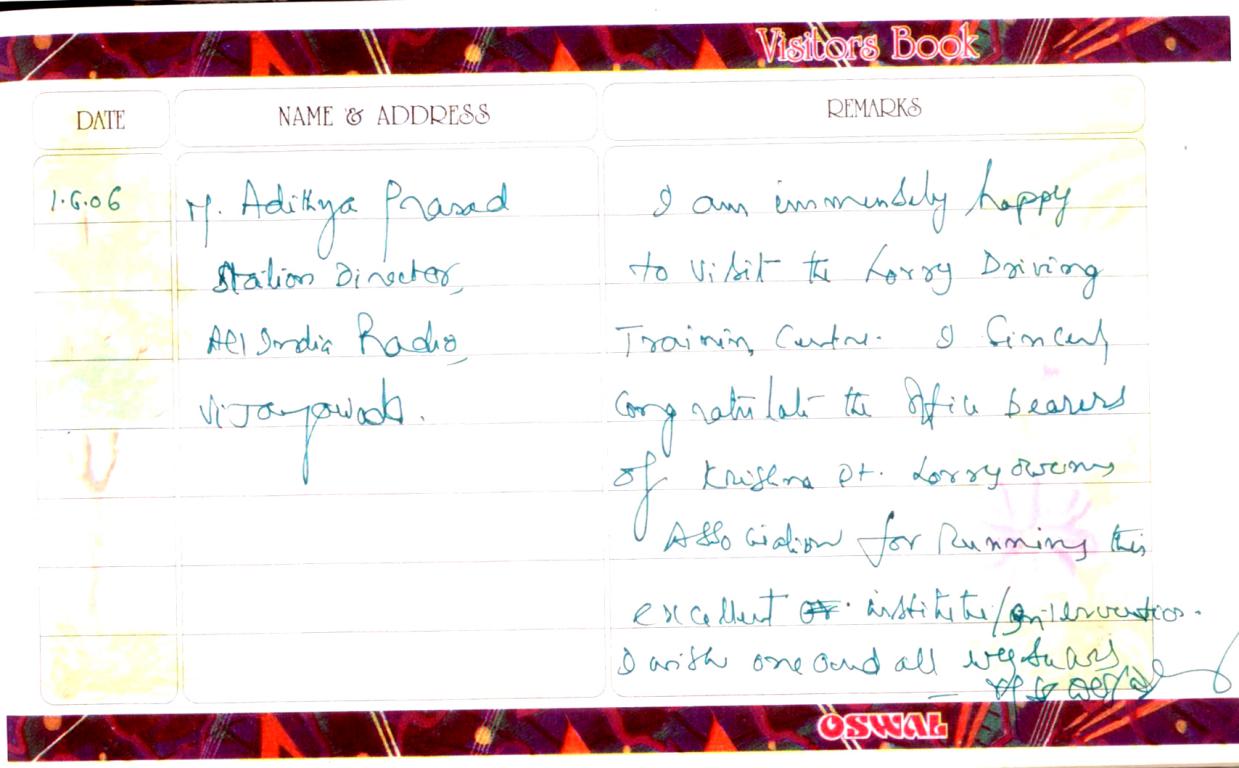 Visitors Book
DATE
NAME & ADDRESS
REMARKS
1.6.06
M. Adithya Prasad
Station Director,
All India Radio,
Vijayawada.
I am immensely happy
to visit the Lorry Driving
Training Centre. I Sincerely
Congratulate the Office bearers
of Krishna Dt. Lorry owners
Association for Running this
excellent institute/
I wish one and all
OSWAL